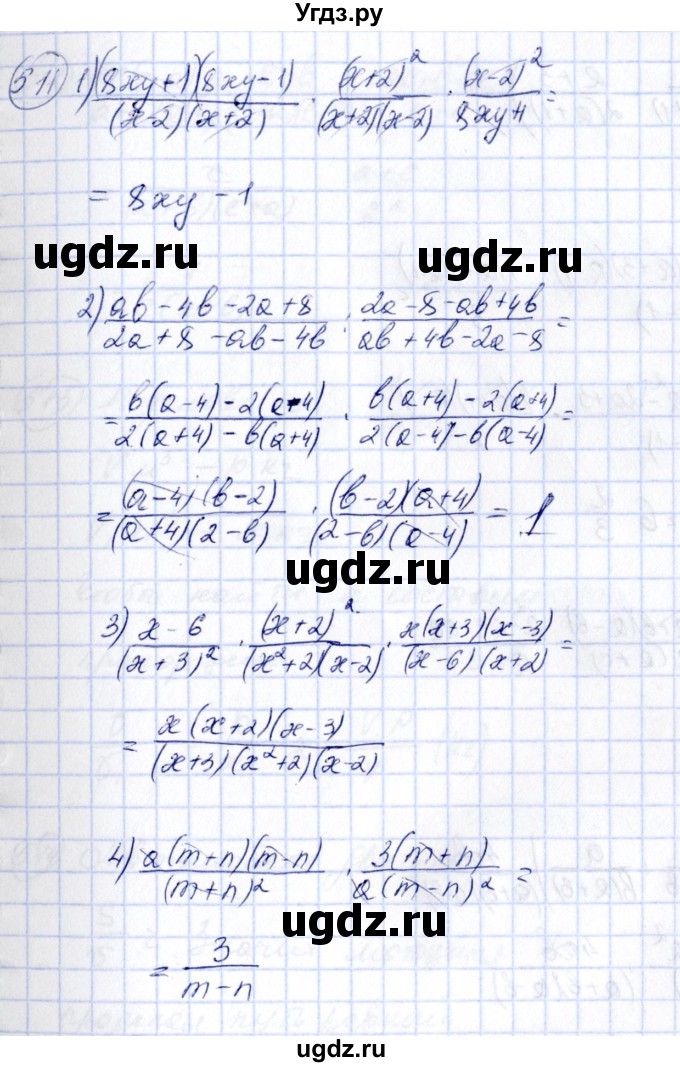 Угдз.ру
511 1) (8xy+1)(8xy-1)/(x-2)(x+2) · (x+2)²/(x+2)(x-2) · (x-2)²/8xy+1 =
= 8xy - 1
ugdz.ru ugdz.ru
2) ab - 4b - 2a + 8/2a + 8 - ab - 4b · 2a - 8 - ab + 4b/ab + 4b - 2a - 8 =
= b(a-4) - 2(a-4)/2(a+4) - b(a+4) · b(a+4) - 2(a+4)/2(a-4) - b(a-4) =
= (a-4)(b-2)/(a+4)(2-b) · (b-2)(a+4)/(2-b)(a-4) = 1
ugdz.ru
3) x - 6/(x+3)² · (x+2)²/(x²+2)(x-2) · x(x+3)(x-3)/(x-6)(x+2) =
= x(x+2)(x-3)/(x+3)(x²+2)(x-2)
4) a(m+n)(m-n)/(m+n)² · 3(m+n)/a(m-n)² =
ugdz.ru
= 3/m-n
ugdz.ru